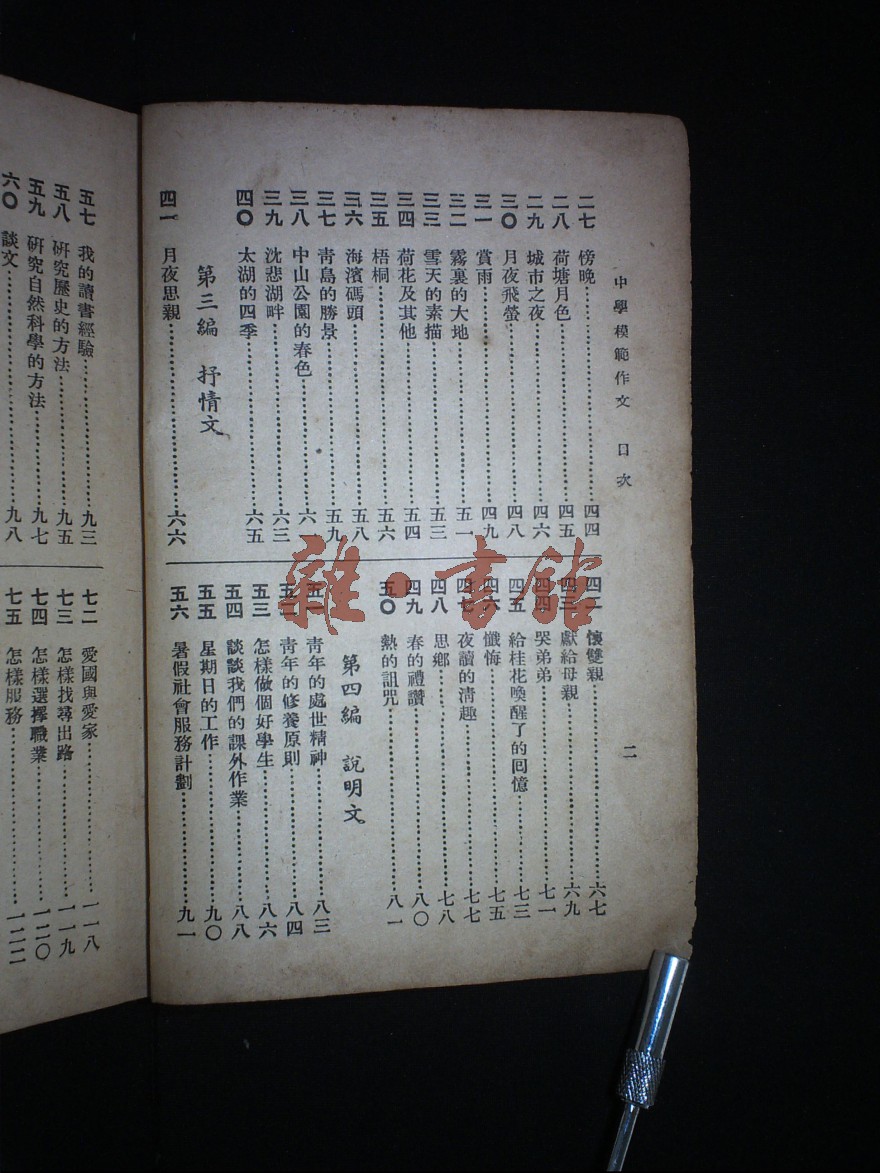 中學模範作文 目次 二
二七 傍晚 四四
二八 荷塘月色 四五
二九 城市之夜 四六
三〇 月夜飛螢 四八
三一 賞雨 四九
三二 霧裏的大地 五一
三三 雪天的素描 五三
三四 荷花及其他 五四
三五 梧桐 五六
三六 海濱碼頭 五八
三七 青島的勝景 五九
三八 中山公園的春色
三九 沈悲湖畔 六三
四〇 太湖的四季 六五
第三編 抒情文
四一 月夜思親 六六
四二 懷雙親 六七
四三 獻給母親 六九
四四 哭弟弟 七一
四五 給桂花喚醒了的囘憶 七三
四六 懺悔 七五
四七 夜讀的淸趣 七七
四八 思鄉 七八
四九 春的禮讚 八〇
五〇 熱的詛咒 八一
第四編 說明文
五一 青年的處世精神 八三
五二 青年的修養原則 八四
五三 怎樣做個好學生 八六
五四 談談我們的課外作業 八八
五五 星期日的工作 九〇
五六 暑假社會服務計劃 九一
五七 我的讀書經驗 九三
五八 研究歷史的方法 九五
五九 研究自然科學的方法 九七
六〇 談文 九八
七二 愛國與愛家 一一八
七三 怎樣找尋出路 一一九
七四 怎樣選擇職業 一二〇
七五 怎樣服務 一二二
雜·書館